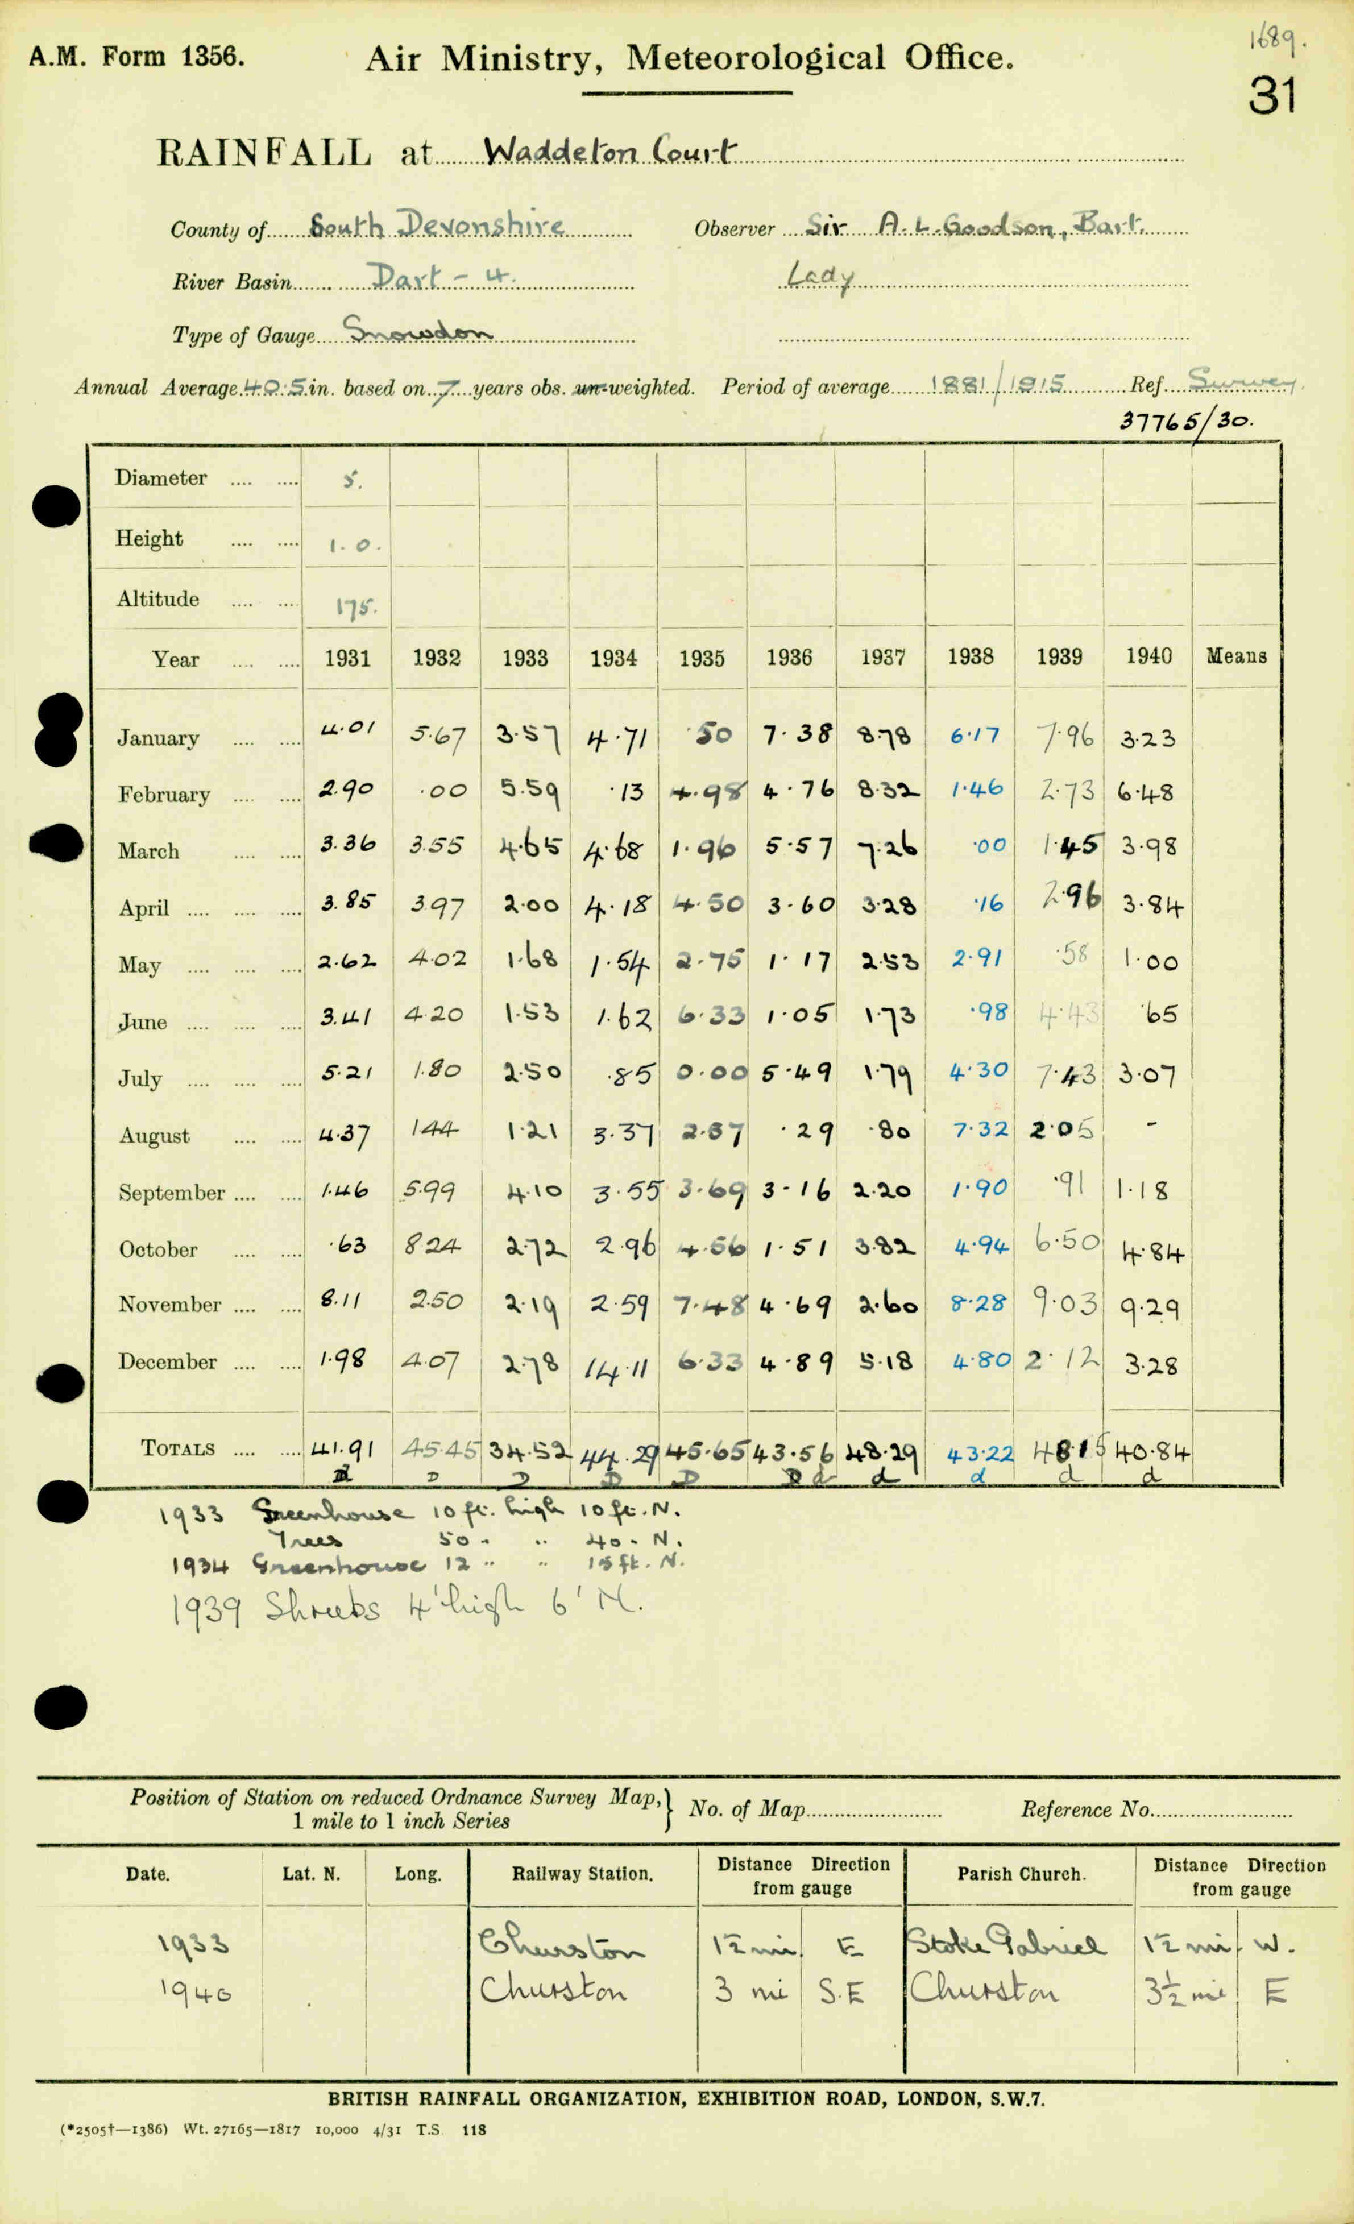 1689.
A.M. Form 1356. Air Ministry, Meteorological Office.
31
RAINFALL at Waddeton Court
County of South Devonshire Observer Sir A. L. Goodson, Bart.
River Basin Dart - 4. Lady
Type of Gauge Snowdon
Annual Average 40.5 in. based on 7 years obs. un-weighted. Period of average 1881/1915 Ref. Survey.
37765/30.
Diameter 5.
Height 1.0.
Altitude 175.
Year 1931 1932 1933 1934 1935 1936 1937 1938 1939 1940 Means
January 4.01 5.67 3.57 4.71 .50 7.38 8.78 6.17 7.96 3.23
February 2.90 .00 5.59 .13 4.98 4.76 8.32 1.46 2.73 6.48
March 3.36 3.55 4.65 4.68 1.96 5.57 7.26 .00 1.45 3.98
April 3.85 3.97 2.00 4.18 4.50 3.60 3.28 .16 2.96 3.84
May 2.62 4.02 1.68 1.54 2.75 1.17 2.53 2.91 .58 1.00
June 3.41 4.20 1.53 1.62 6.33 1.05 1.73 .98 4.43 .65
July 5.21 1.80 2.50 .85 0.00 5.49 1.79 4.30 7.43 3.07
August 4.37 1.44 1.21 3.37 2.57 .29 .80 7.32 2.05 -
September 1.46 5.99 4.10 3.55 3.69 3.16 2.20 1.90 .91 1.18
October .63 8.24 2.72 2.96 4.56 1.51 3.82 4.94 6.50 4.84
November 8.11 2.50 2.19 2.59 7.48 4.69 2.60 8.28 9.03 9.29
December 1.98 4.07 2.78 14.11 6.33 4.89 5.18 4.80 2.12 3.28
TOTALS 41.91 45.45 34.52 44.29 45.65 43.56 48.29 43.22 48.15 40.84
D D D D D d d d d
1933 Greenhouse 10 ft. high 10 ft. N.
Trees 50 " " 40 " N.
1934 Greenhouse 12 " " 15 ft. N.
1939 Shrubs 4' high 6' N.
Position of Station on reduced Ordnance Survey Map, 1 mile to 1 inch Series } No. of Map Reference No.
Date. Lat. N. Long. Railway Station. Distance Direction from gauge Parish Church. Distance Direction from gauge
1933 Churston 1½ mi. E Stoke Gabriel 1½ mi. W.
1940 Churston 3 mi S.E Churston 3½ mi E
BRITISH RAINFALL ORGANIZATION, EXHIBITION ROAD, LONDON, S.W.7.
(*2505†—1386) Wt. 27165—1817 10,000 4/31 T.S. 118